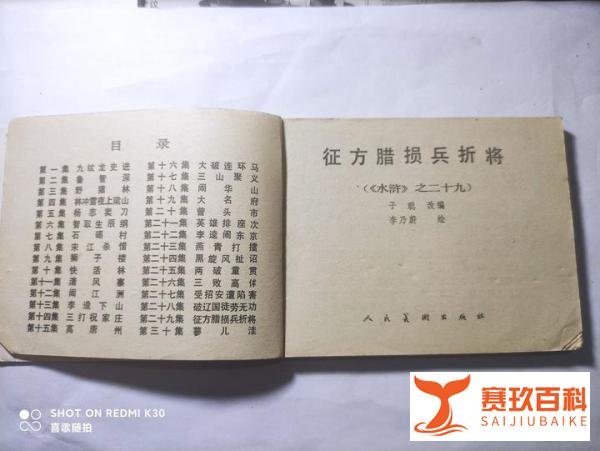 目录
第一集 九纹龙史进
第二集 鲁智深
第三集 野猪林
第四集 林冲雪夜上梁山
第五集 杨志卖刀
第六集 智取生辰纲
第七集 石碣村
第八集 宋江杀惜
第九集 狮子楼
第十集 快活林
第十一集 清风寨
第十二集 闹江州
第十三集 李逵下山
第十四集 三打祝家庄
第十五集 高唐州
第十六集 大破连环马
第十七集 三山聚义
第十八集 闹华山
第十九集 大名府
第二十集 曾头市
第二十一集 英雄排座次
第二十二集 李逵闹东京
第二十三集 燕青打擂
第二十四集 黑旋风扯诏
第二十五集 两破童贯
第二十六集 三败高俅
第二十七集 受招安遭陷害
第二十八集 破辽国徒劳无功
第二十九集 征方腊损兵折将
第三十集 蓼儿洼
征方腊损兵折将
（《水浒》之二十九）
子聪 改编
李乃蔚 绘
人民美术出版社
SHOT ON REDMI K30
喜歌随拍
赛玖百科
SAIJIUBAIKE